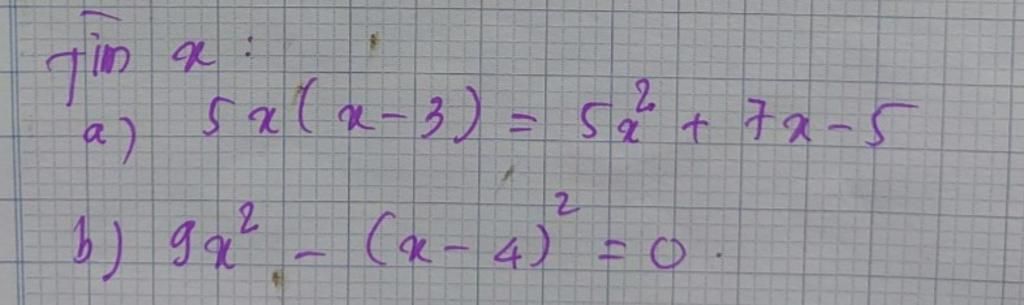 Tìm x :
a) 5x(x-3) = 5x² + 7x - 5
b) 9x² - (x-4)² = 0.